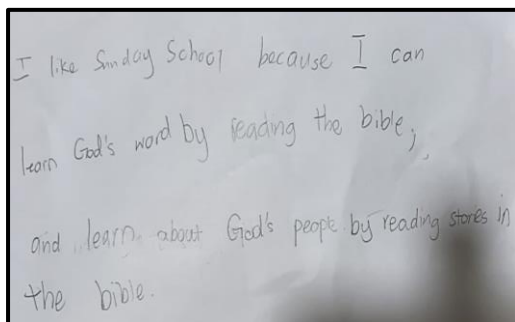 I like Sunday School because I can
learn God's word by reading the bible,
and learn about God's peopl by reading stores in
the bible.